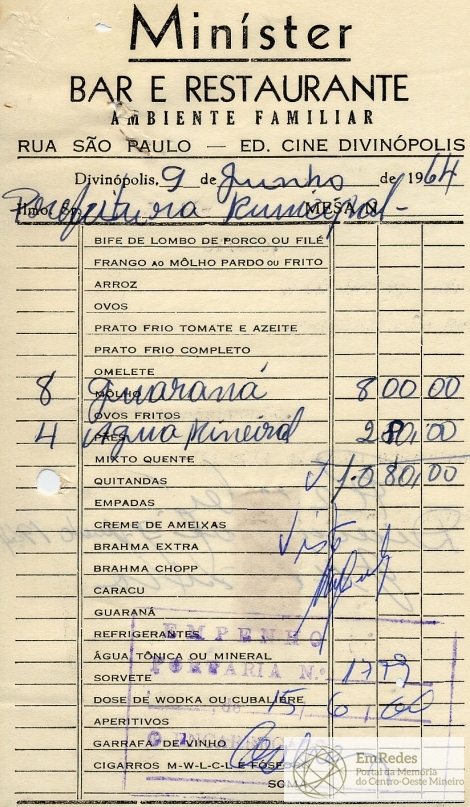 Miníster
BAR E RESTAURANTE
AMBIENTE FAMILIAR
RUA SÃO PAULO — ED. CINE DIVINÓPOLIS
Divinópolis, 9 de Junho de 1964
Ilmo. Sr. Prefeitura Municipal - MESA N.
BIFE DE LOMBO DE PORCO OU FILÉ
FRANGO AO MÔLHO PARDO OU FRITO
ARROZ
OVOS
PRATO FRIO TOMATE E AZEITE
PRATO FRIO COMPLETO
OMELETE
MOLHO
8 Guaraná 800,00
OVOS FRITOS
PÃES
4 Agua Mineral 280,00
MIXTO QUENTE
QUITANDAS
1.080,00
EMPADAS
CREME DE AMEIXAS
BRAHMA EXTRA
Visto
BRAHMA CHOPP
CARACU
GUARANÁ
REFRIGERANTES
EMPENHO
ÁGUA TÔNICA OU MINERAL
PORTARIA N.º
SORVETE
DOSE DE WODKA OU CUBALIBRE
15
APERITIVOS
GARRAFA DE VINHO
CIGARROS M-W-L-C-L E FÓSFORO
SOMA
EmRedes
Portal da Memória
do Centro-Oeste Mineiro